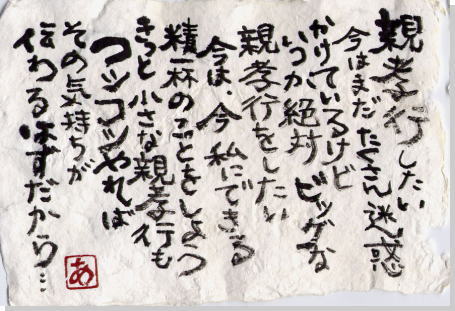 親孝行したい
今はまだたくさん迷惑
かけているけど
いつか絶対ビッグな
親孝行をしたい
今は、今私にできる
精一杯のことをしよう
きっと小さな親孝行も
コツコツやれば
その気持ちが
伝わるはずだから…
あ